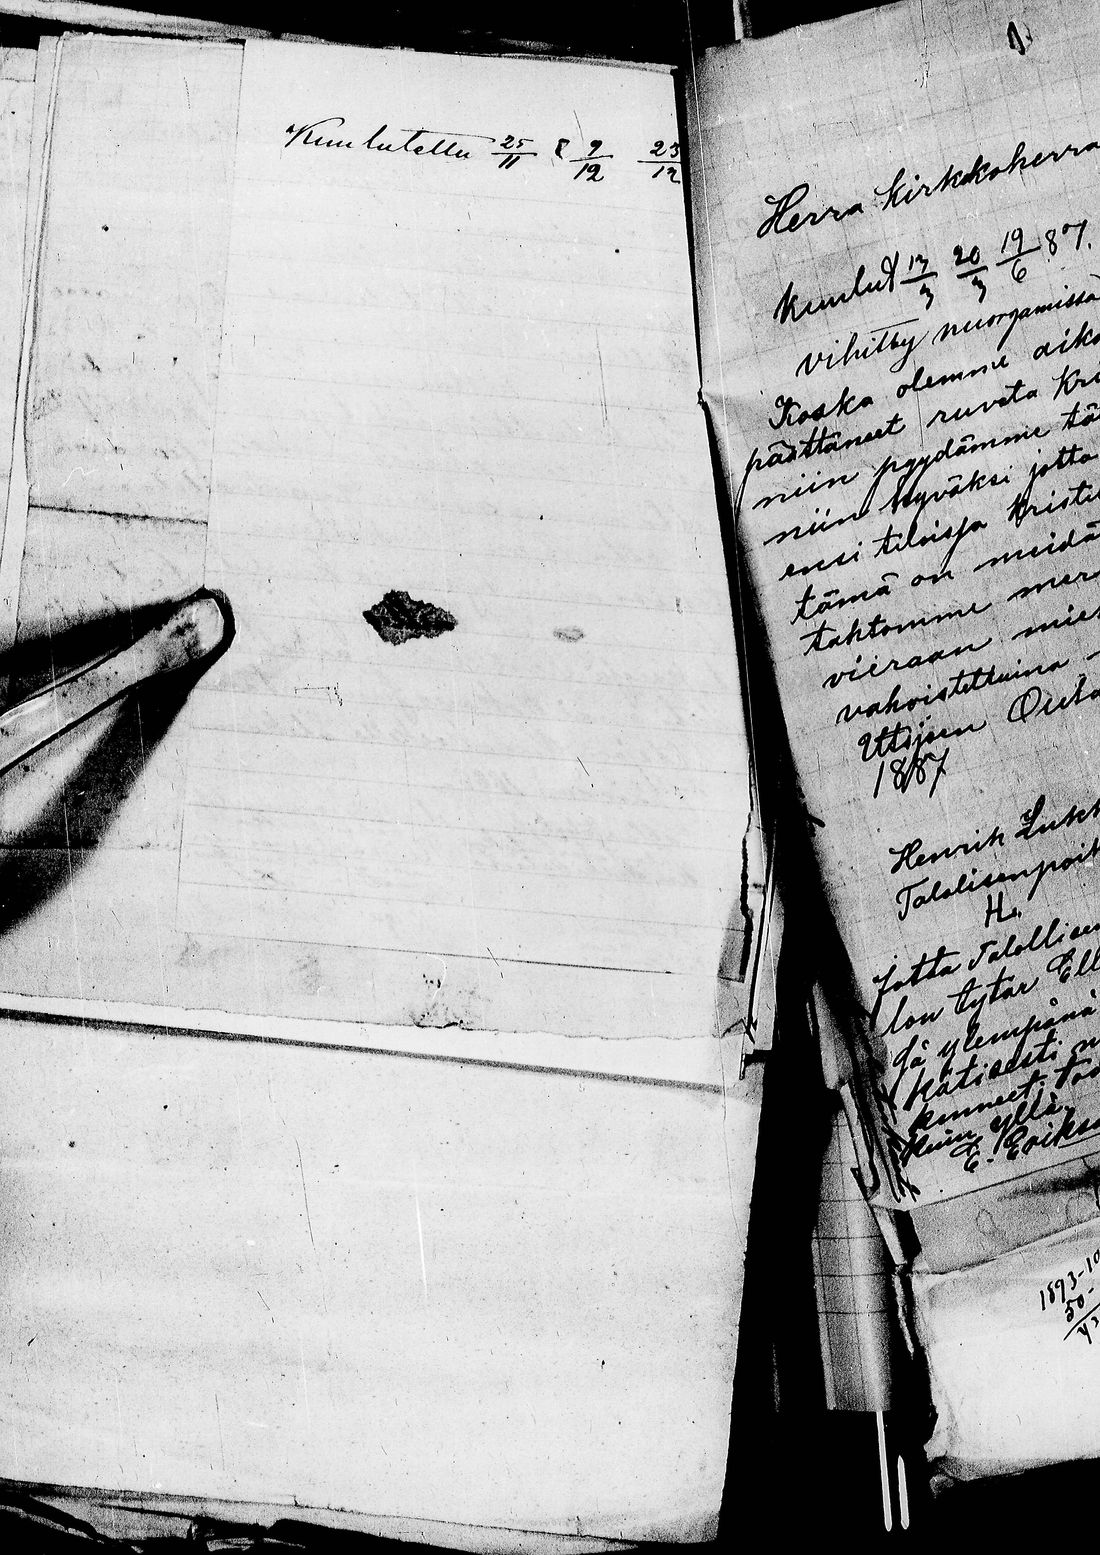 Kuulutettu 25/11 & 9/12 23/12
1
Herra Kirkkoherra
Kuulut 13/3 20/3 19/6 87.
vihitty nuorgamissa
Koska olemme aiko
päättäneet ruveta Kri
niin pyydämme tä
niin hyväksi jotta
ensi tiloissa Kristi
tämä on meidä
tahtomme mer
vieraan mies
vahvistettuina
Utsjoen Outa
1887
Henrik Lukk
Talolisenpoik
H.
Jotta Talollisen
lon tytär Ell
jä ylempänä
kätisesti m
kenneet; tod
Kuin yllä.
E. Erikss
1893-10
50-